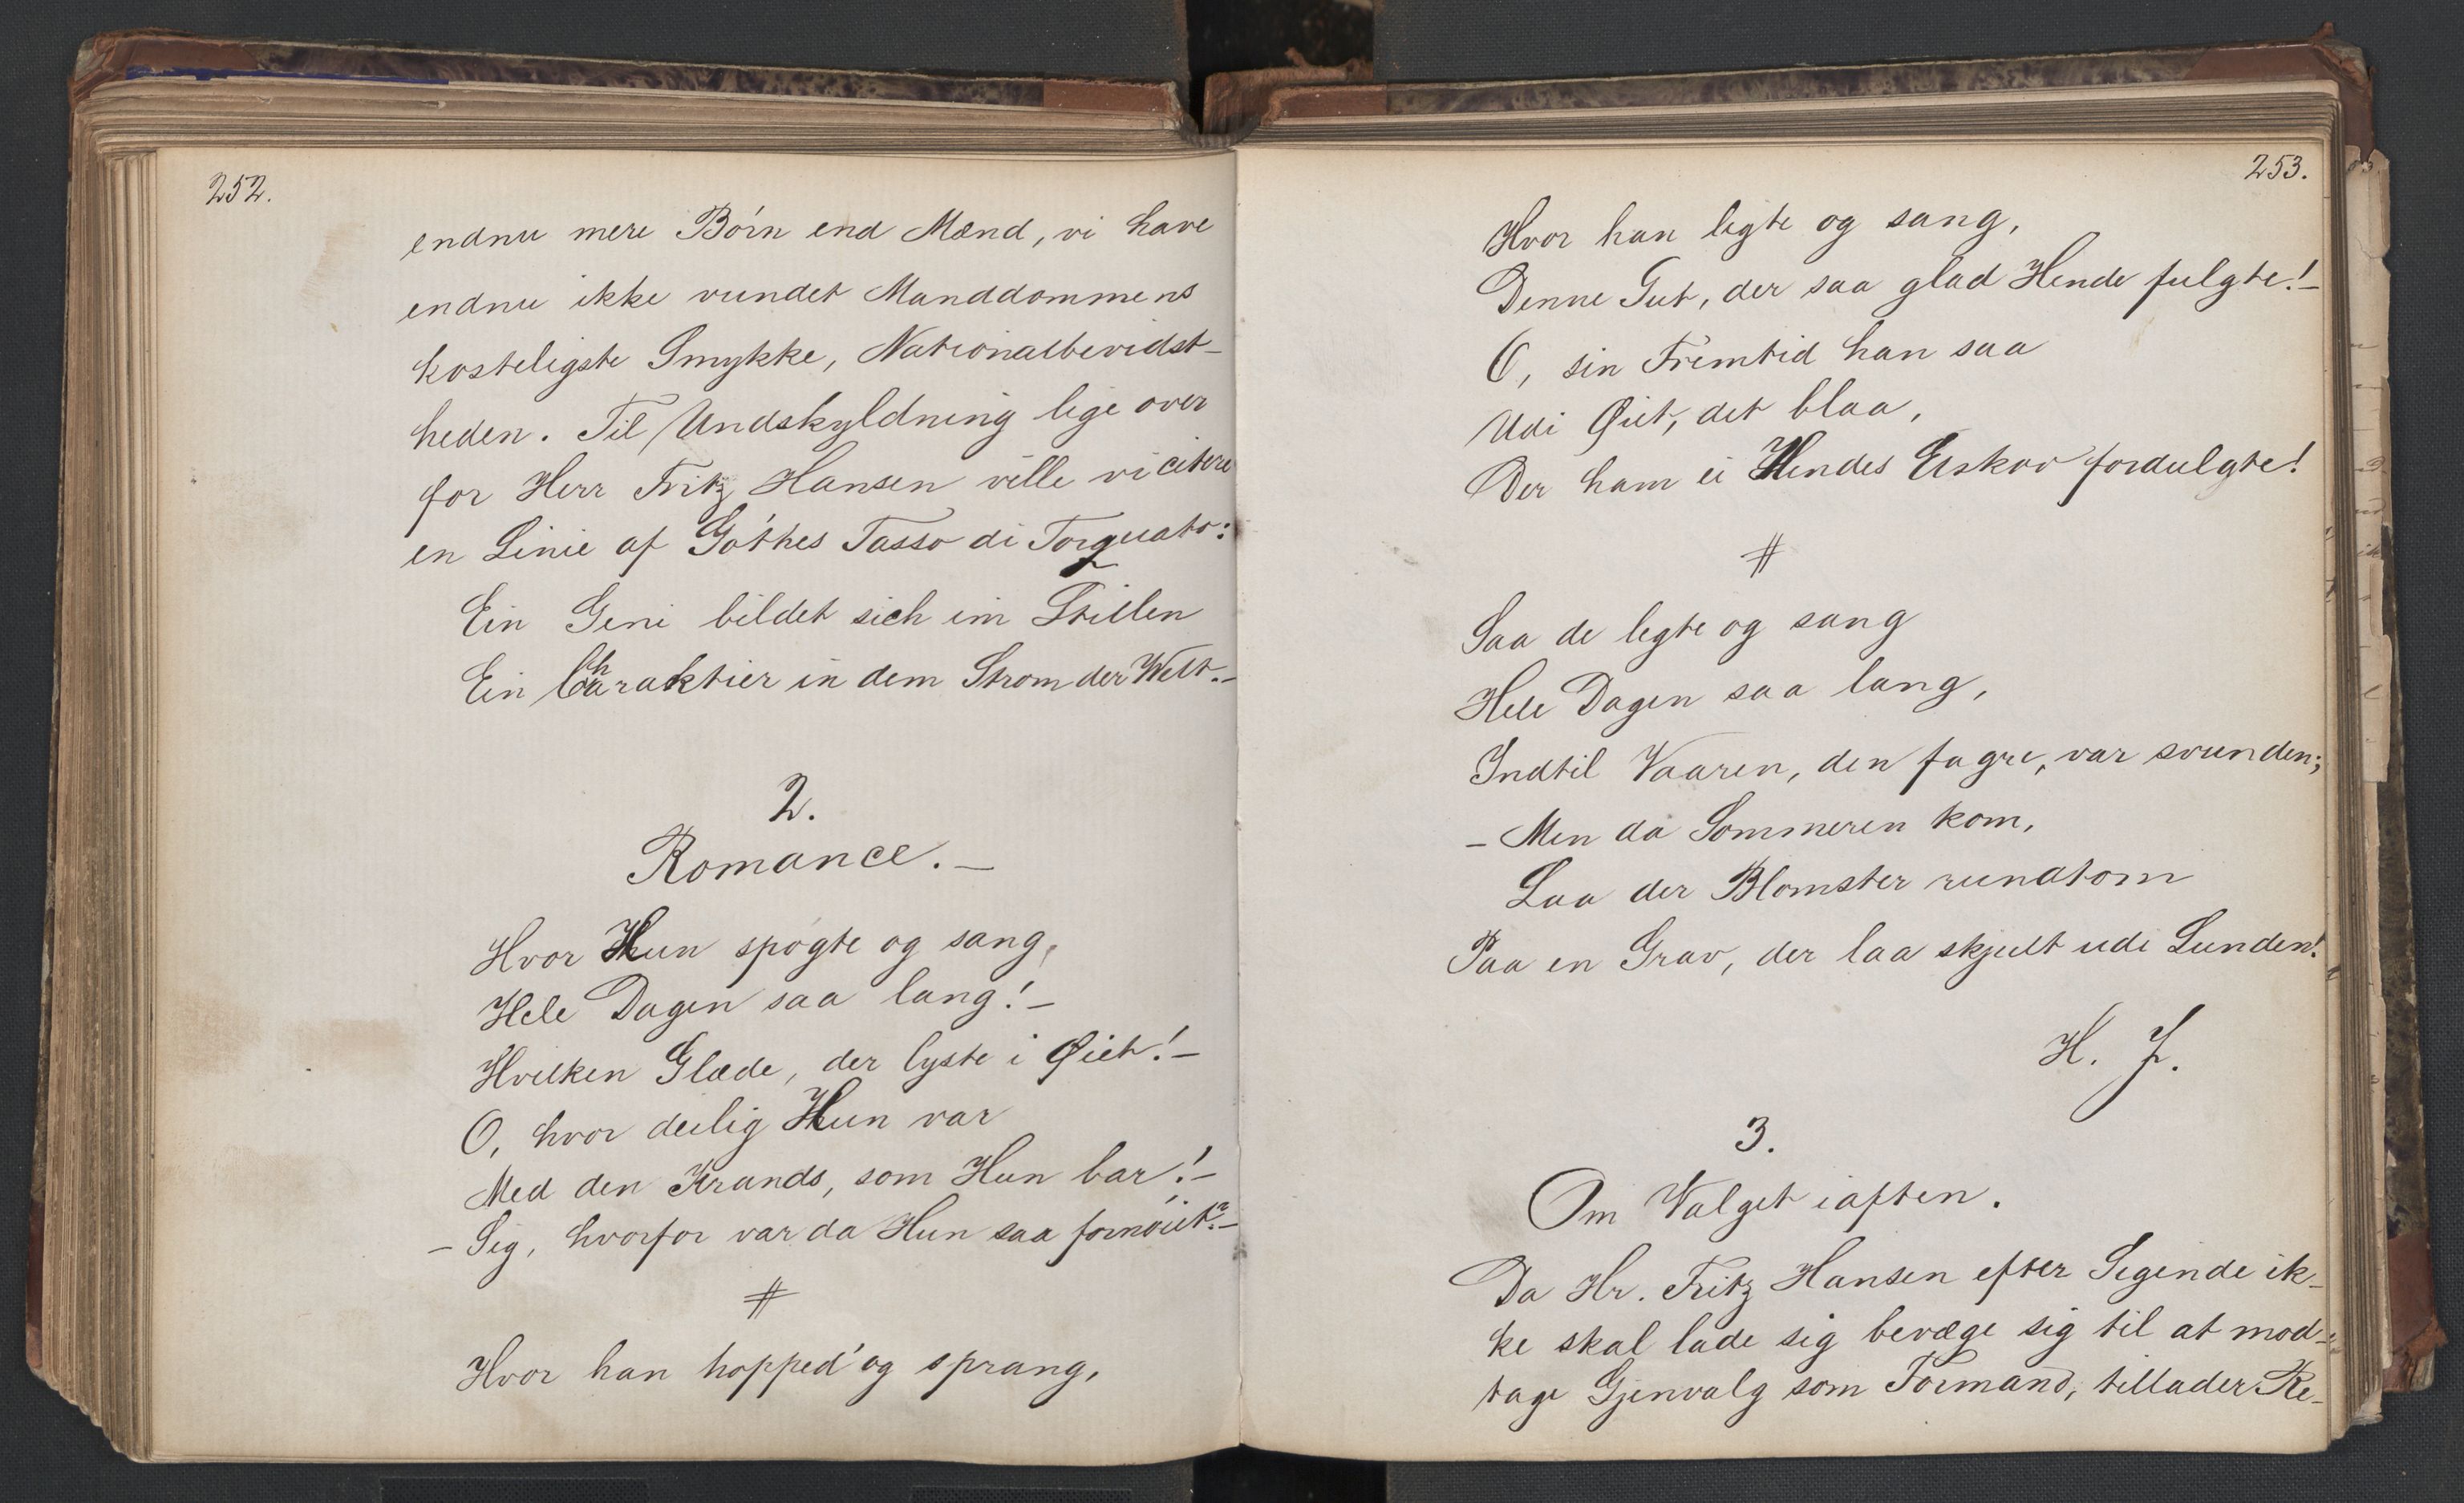 252.
endnu mere Börn end Mænd, vi have
endnu ikke vundet Manddommens
kosteligste Smykke, Nationalbevidst-
heden. Til Undskyldning lige over
for Herr Fritz Hansen ville vi citere
en Linie af Göthes Tasso di Torquato:
Ein Geni bildet sich im Stillen
Ein Charaktier in dem Strom der Welt.-
2.
Romance.-
Hvor Hun spøgte og sang,
Hele Dagen saa lang!-
Hvilken Glæde, der lyste i Øiet!-
O, hvor deilig Hun var
Med den Krands, som Hun bar!-
- Sig, hvorfor var da Hun saa fornöiet?-
#
Hvor han hopped' og sprang,
253.
Hvor han legte og sang,
Denne Gut, der saa glad Hende fulgte!-
O, sin Fremtid han saa
Udi Øiet, det blaa,
Der ham ei Hendes Elskov fordulgte!
#
Saa de legte og sang
Hele Dagen saa lang,
Indtil Vaaren, den fagre, var svunden;
- Men da Sommeren kom,
Laa der Blomster rundtom
Paa en Grav, der laa skjult udi Lunden!
H. J.
3.
Om Valget iaften.
Da Hr. Fritz Hansen efter Sigende ik-
ke skal lade sig bevæge sig til at mod-
tage Gjenvalg som Formand, tillader Re-